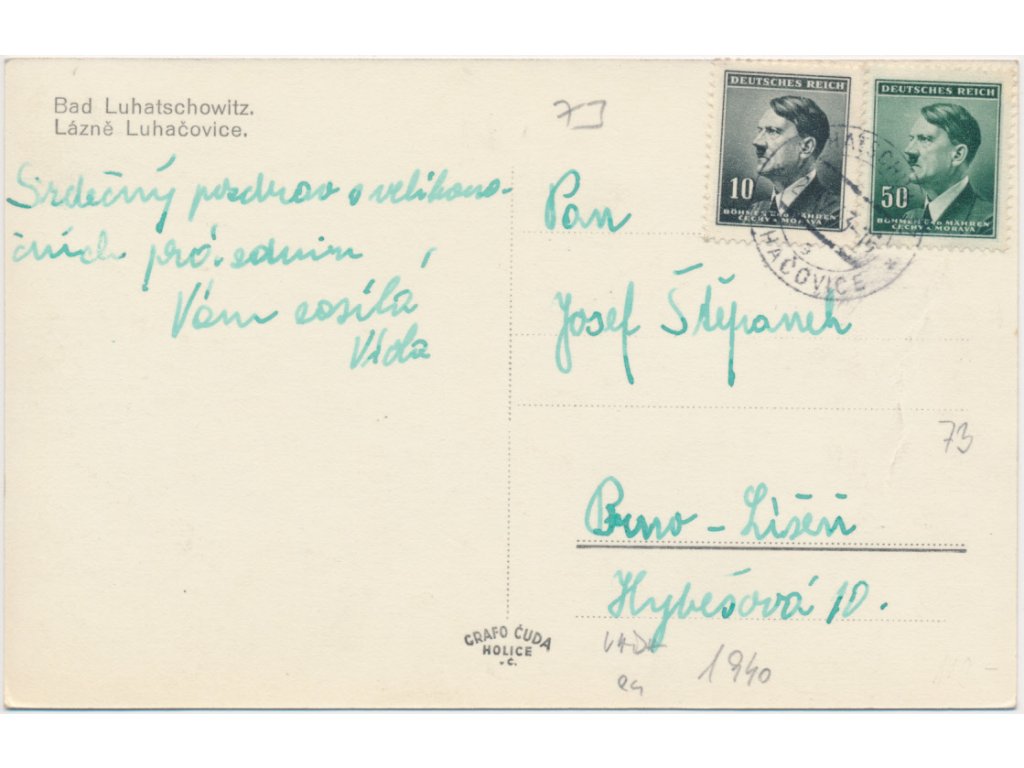 Bad Luhatschowitz.
Lázně Luhačovice.
73
DEUTSCHES REICH
10
BÖHMEN UND MÄHREN
ČECHY A MORAVA
DEUTSCHES REICH
50
BÖHMEN UND MÄHREN
ČECHY A MORAVA
HAČOVICE *
Srdečný pozdrav o veliko-
čních
Vám zasílá
Vída
Pan
Josef Štěpánek
73
Brno - Líšeň
Hybešová 10.
GRAFO ČUDA
HOLICE
v. Č.
1940